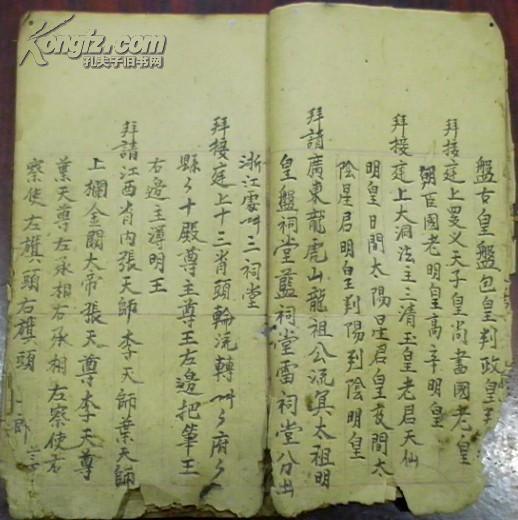 Kongfz.com
孔夫子旧书网
盤古皇盤包皇判政皇
拜接庭上罗义天子皇尚書國老皇
朝臣國老明皇高辛明皇
拜接庭上大洞法主三清玉皇老君天仙
明皇日間太陽星君皇夜間太
陰星君明皇判陽判陰明皇
拜請廣東龍虎山龍祖公流冥太祖明
皇盤祠堂藍祠堂雷祠堂分出
浙江雲叫三祠堂
拜接庭上十三肖頭輪流轉叫々府々
縣々十殿尊主尊王左邊把筆王
右邊主薄明王
拜請江西省内張天師李天師葉天師
上欄金闕大帝張天尊李天尊
葉天尊左承相右承相左察使右
察使左旗頭右旗頭